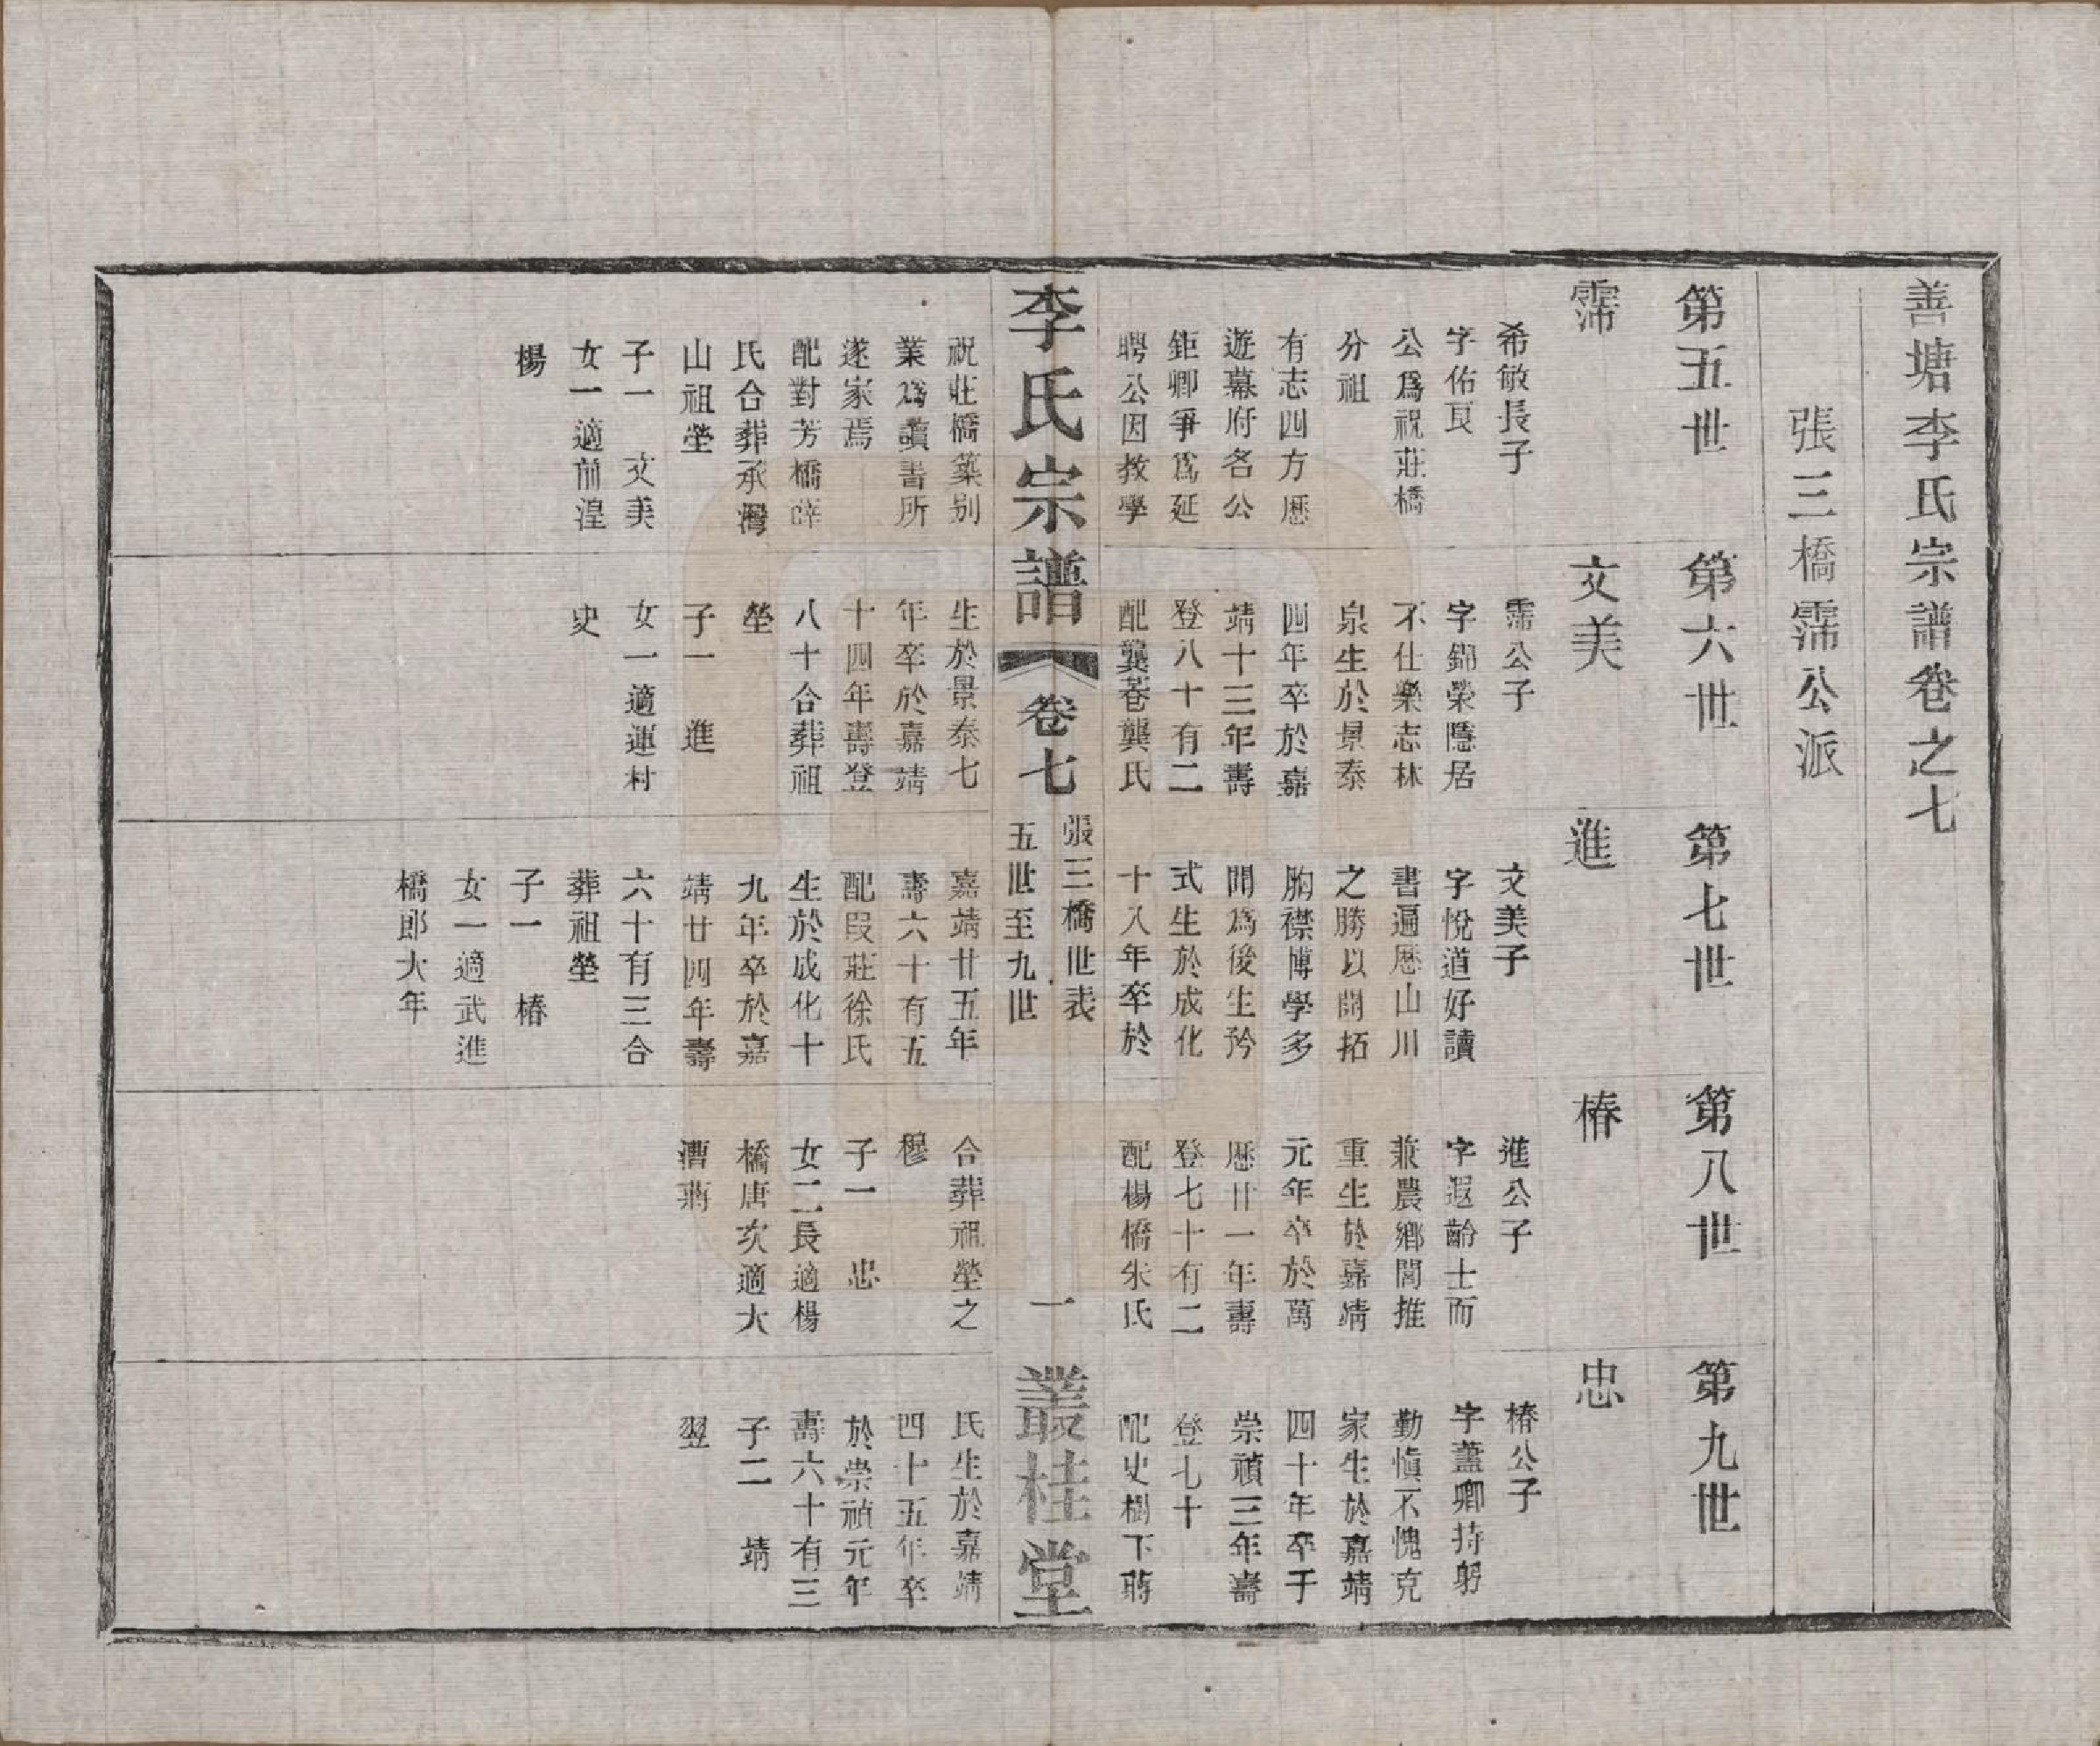 善塘李氏宗譜卷之七
張三橋霈公派
第五世
霈
希敏長子
字佑良
公爲祝莊橋
分祖
有志四方歷
遊幕府名公
鉅卿爭爲延
聘公因教學
祝莊橋築别
業爲讀書所
遂家焉
配對芳橋薛
氏合葬承灣
山祖塋
子一　文美
女一適前湟
楊
第六世
文美
霈公子
字錦榮隱居
不仕樂志林
泉生於景泰
四年卒於嘉
靖十三年壽
登八十有二
配龔巷龔氏
生於景泰七
年卒於嘉靖
十四年壽登
八十合葬祖
塋
子一　進
女一適運村
史
第七世
進
文美子
字悅道好讀
書遍歷山川
之勝以開拓
胸襟博學多
聞爲後生矜
式生於成化
十八年卒於
嘉靖廿五年
壽六十有五
配段莊徐氏
生於成化十
九年卒於嘉
靖廿四年壽
六十有三合
葬祖塋
子一　椿
女一適武進
橋郎大年
第八世
椿
進公子
字遐齡士而
兼農鄉閭推
重生於嘉靖
元年卒於萬
歷廿一年壽
登七十有二
配楊橋朱氏
合葬祖塋之
穆
子一　忠
女二長適楊
橋唐次適大
漕蔣
第九世
忠
椿公子
字藎卿持躬
勤慎不愧克
家生於嘉靖
四十年卒于
崇禎三年壽
登七十
配史樹下蔣
氏生於嘉靖
四十五年卒
於崇禎元年
壽六十有三
子二　靖
翌
李氏宗譜
卷七
張三橋世表
五世至九世
一
叢桂堂